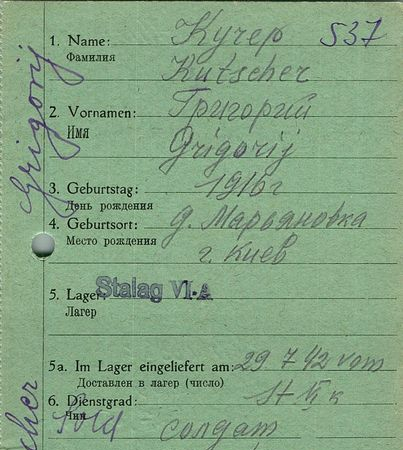 1. Name: Кучер 537
Фамилия Kutscher
2. Vornamen: Григорий
Имя Grigorij
3. Geburtstag: 1916г
День рождения
4. Geburtsort: д. Марьяновка
Место рождения г. Киев
5. Lager: Stalag VI-A
Лагер
5a. Im Lager eingeliefert am: 29 7 42 vom
Доставлен в лагер (число)
6. Dienstgrad:
Чин Sold солдат
Grigorij